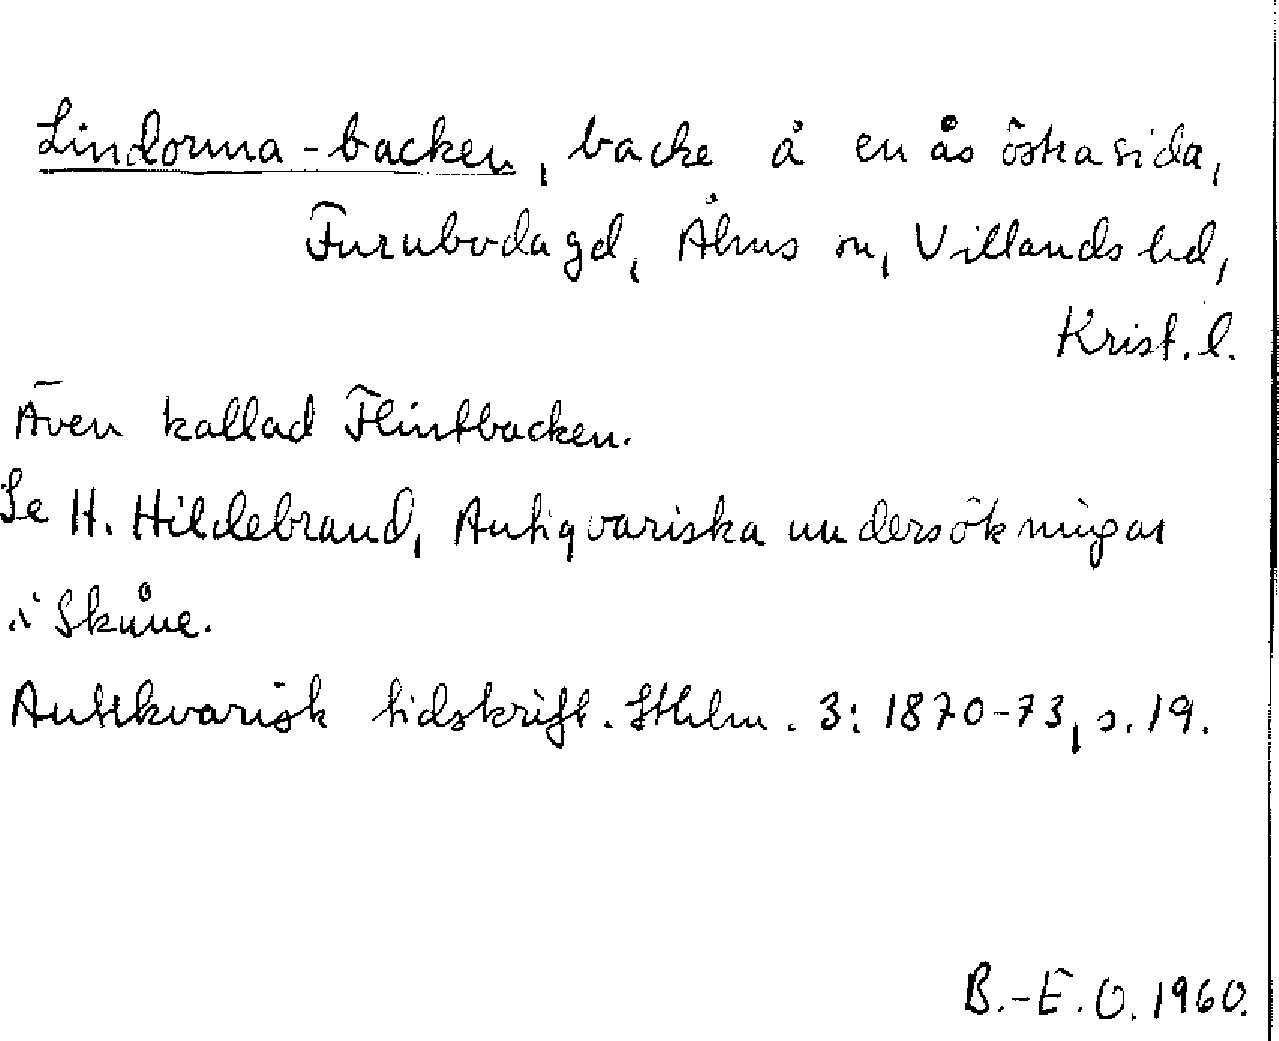 Lindorma-backen, backe å en ås östra sida,
Furuboda gd, Åhus sn, Villands hd,
Krist. l.
Även kallad Flintbacken.
Se H. Hildebrand, Antiqvariska undersökningar
i Skåne.
Antikvarisk tidskrift. Sthlm. 3: 1870-73, s. 19.
B.-E. O. 1960.